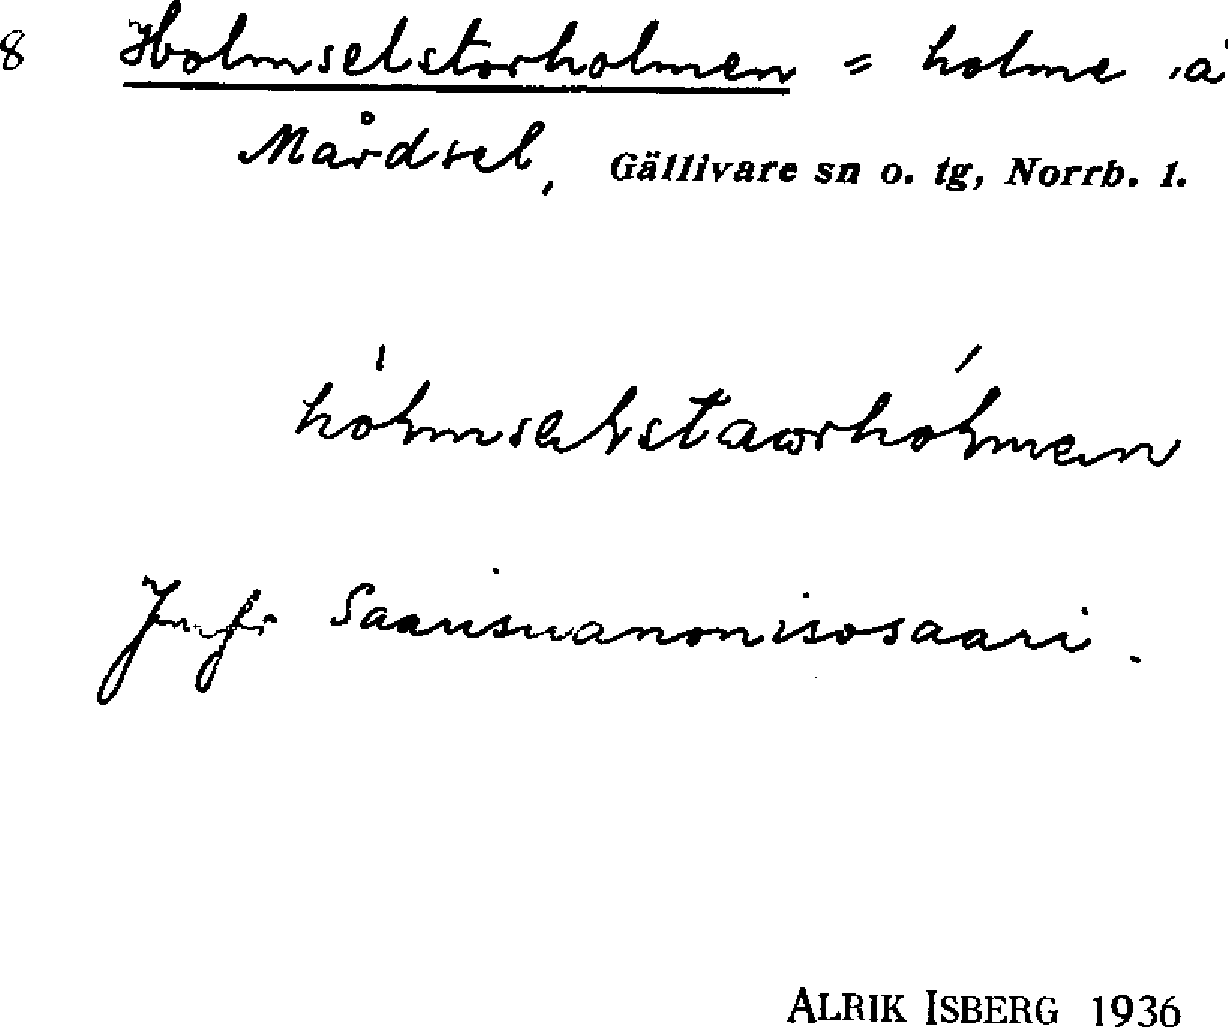 8 Holmselstorholmen = holme å
Mårdsel, Gällivare sn o. tg, Norrb. l.
Jmfr Saarisuanonisosaari.
ALRIK ISBERG 1936